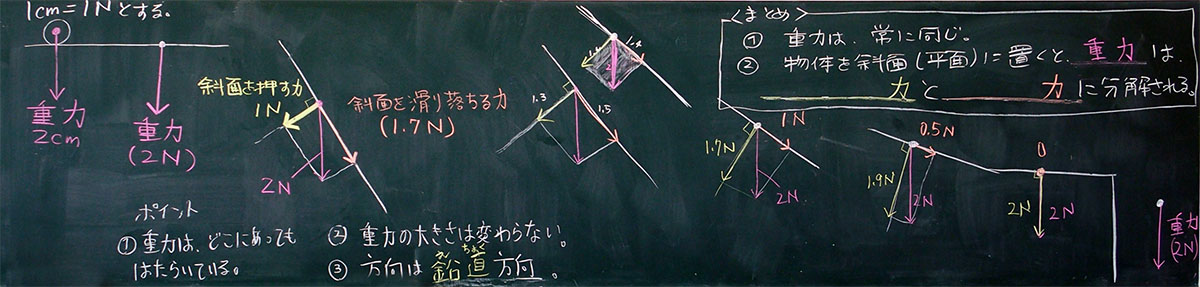 1cm=1Nとする。
重力
2cm
重力
(2N)
斜面を押す力
1N
斜面を滑り落ちる力
(1.7N)
2N
ポイント
① 重力は、どこにあっても
はたらいている。
② 重力の大きさは変わらない。
③ 方向は鉛直方向。
えん ちょく
1.3
1.5
<まとめ>
① 重力は、常に同じ。
② 物体を斜面(平面)に置くと、重力は、
力と 力に分解される。
1N
1.7N
2N
0.5N
1.9N
2N
0
2N
2N
重力
(2N)